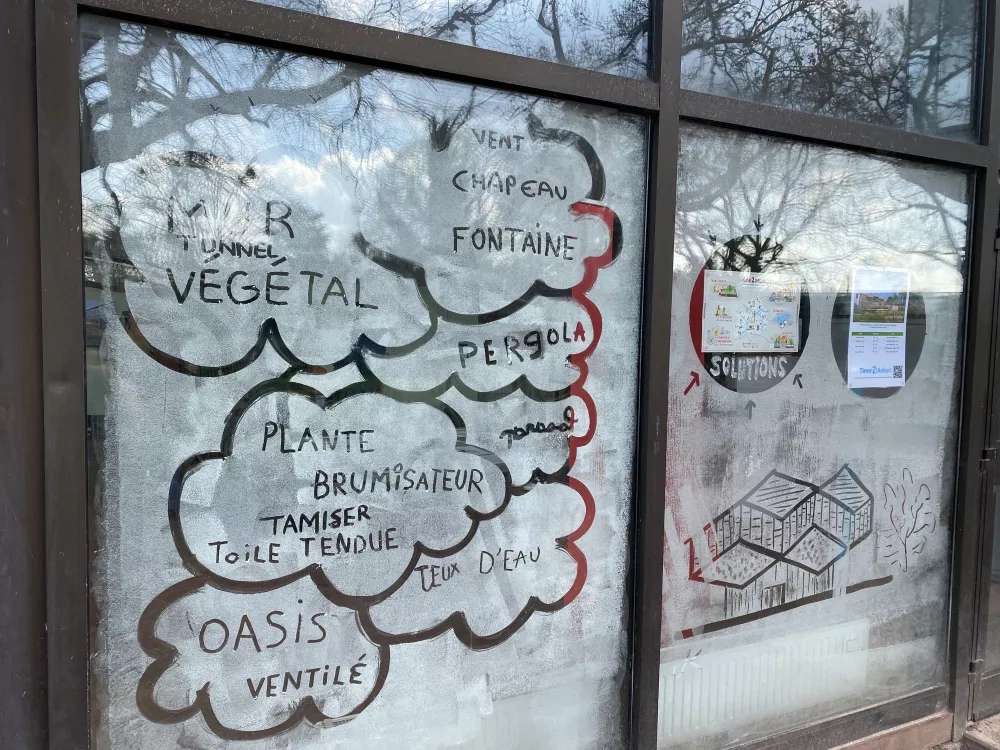 MUR
TUNNEL
VÉGÉTAL
VENT
CHAPEAU
FONTAINE
PERGOLA
PLANTE
BRUMISATEUR
TAMISER
TOILE TENDUE
JEUX D'EAU
OASIS
VENTILÉ
SOLUTIONS
Time2Adapt